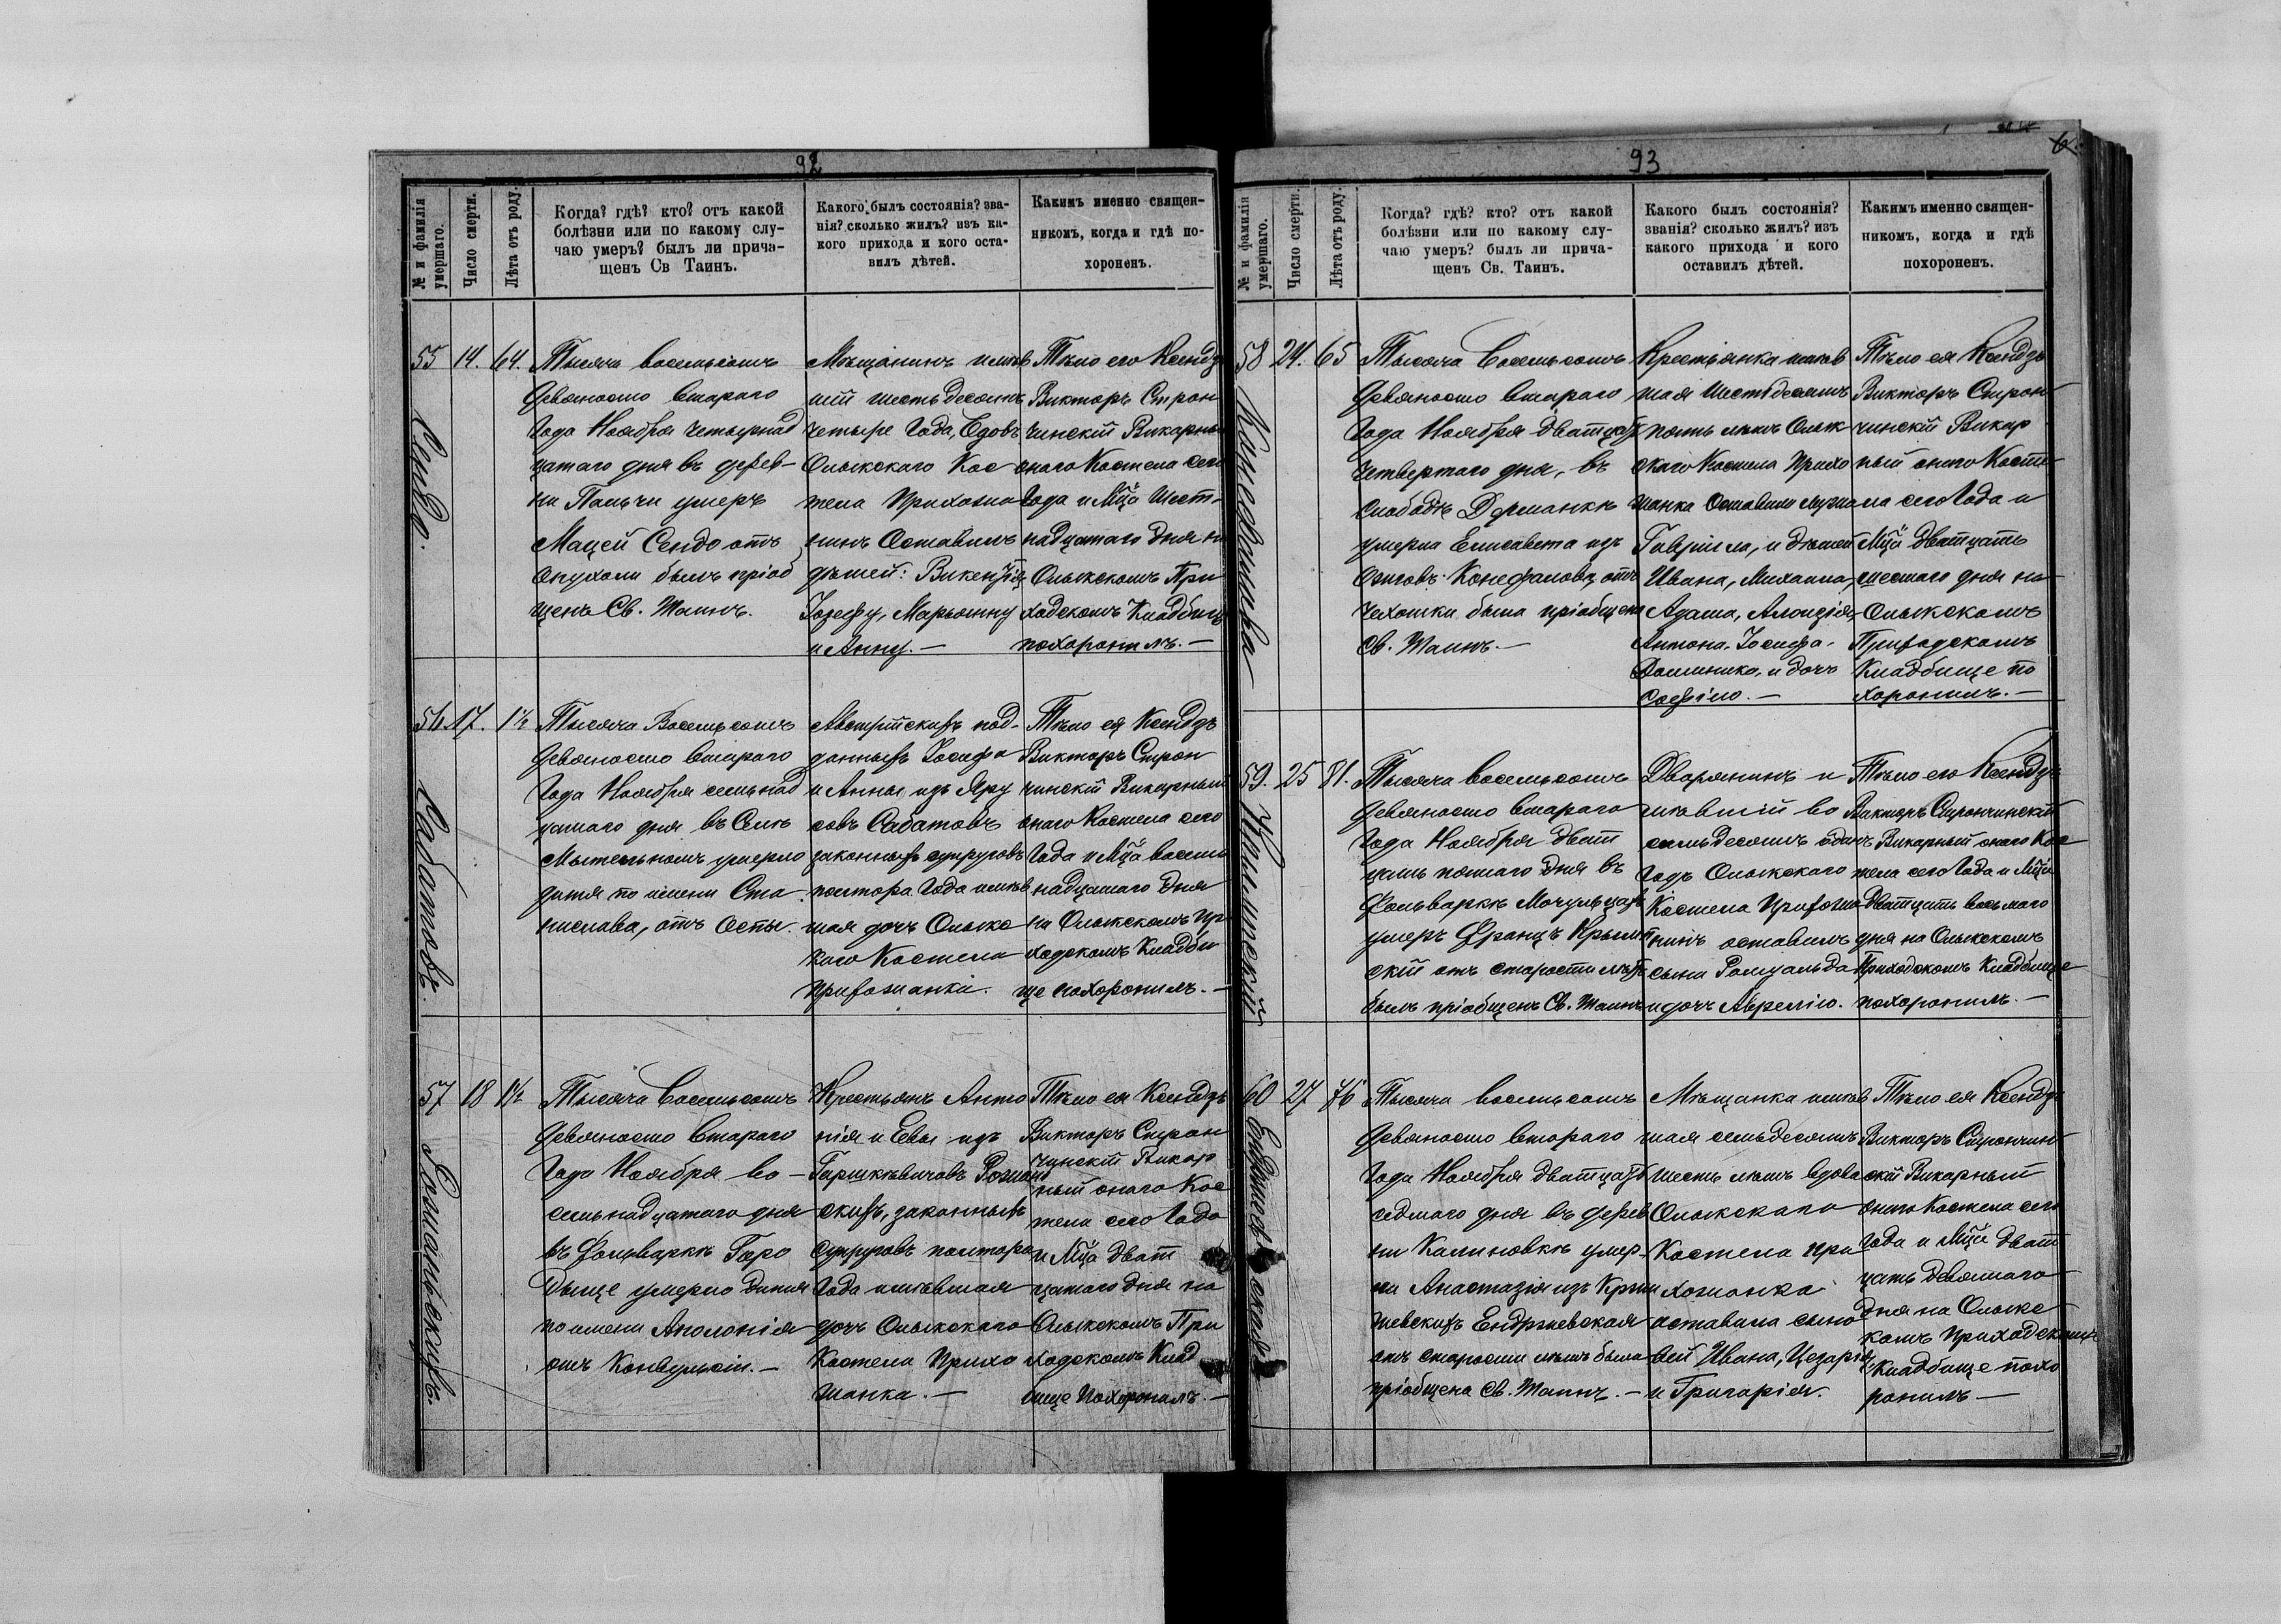 92
№ и фамилія умершаго.
Число смерти.
Лѣта отъ роду.
Когда? гдѣ? кто? отъ какой
болѣзни или по какому слу-
чаю умеръ? былъ ли прича-
щенъ Св Таинъ.
Какого былъ состоянія? зва-
нія? сколько жилъ? изъ ка-
кого прихода и кого оста-
вилъ дѣтей.
Какимъ именно священ-
никомъ, когда и гдѣ по-
хороненъ.
55
Сендо.
14.
64.
Тысяча восемьсотъ
девяносто втараго
Года Ноября четырнад
цатаго дня въ дерев-
ни Пальчи умеръ
Мацей Сендо отъ
опухоли былъ пріоб
щенъ Св. Таинъ.
Мѣщанинъ имѣв
шій шестьдесятъ
четыре Года, Вдовъ
Олыкскаго Кос
тела Прихожа
нинъ Оставилъ
дѣтей: Викентія,
Іозефу, Марьянну
и Анну. —
Тѣло его Ксендзъ
Викторъ Строн
чинскій Викарный
онаго Костела сего
Года и Мца Шест-
надцатаго Дня на
Олыкскомъ При
ходскомъ Кладбищѣ
похоронилъ. —
56
Сабатовъ.
17.
1½
Тысяча Восемьсотъ
девяносто втараго
Года Ноября семнад
цатаго дня въ Селѣ
Мытельномъ умерло
дитя по имени Ста
нислава, отъ Оспы.
Австрійскихъ под-
данныхъ Іосифа
и Анны изъ Яру
совъ Сабатовъ
законныхъ супруговъ
полтора Года имѣв
шая дочь Олыкс
каго Костела
прихожанки.
Тѣло ея Ксендзъ
Викторъ Строн
чинскій Викарный
онаго Костела сего
Года и Мца восем
надцатаго Дня
на Олыкскомъ При
ходскомъ Кладби
ще похоронилъ. —
57
18
1½
Тысяча Восемьсотъ
девяносто втараго
Года Ноября во-
семьнадцатаго дня
въ Фольваркѣ Горо
дыще умерло дитя
по имени Аполонія
отъ Конвульсіи. —
Крестьянъ Анто
нія и Евы изъ
скихъ, законныхъ
супруговъ полтора
Года имѣвшая
дочь Олыкскаго
Костела Прихо
жанка. —
Тѣло ея Ксендзъ
Викторъ Строн
чинскій Викар
ный онаго Кос
тела сего Года
и Мца Дват
цатаго дня на
Олыкскомъ При
ходскомъ Клад
бище Похоронилъ. —
93
№ и фамилія умершаго.
Число смерти.
Лѣта отъ роду.
Когда? гдѣ? кто? отъ какой
болѣзни или по какому слу-
чаю умеръ? былъ ли прича-
щенъ Св. Таинъ.
Какого былъ состоянія?
званія? сколько жилъ? изъ
какого прихода и кого
оставилъ дѣтей.
Какимъ именно священ-
никомъ, когда и гдѣ
похороненъ.
58
24.
65
Тысяча Восемьсотъ
девяносто втараго
Года Ноября Дватцать
четвертаго дня, въ
слободѣ Дерманкѣ
умерла Елисавета изъ
отъ
чахотки была пріобщена
Св. Таинъ. —
Крестьянка имѣв
шая Шестьдесятъ
пять лѣтъ Олык
скаго Костела Прихо
жанка Оставила мужа
Гавріила, и дѣтей
Ивана, Михаила,
Адама, Алоизія,
Антона, Іосифа,
Доминика, и дочь
Софію. —
Тѣло ея Ксендзъ
Викторъ Строн
чинскій Викар
ный онаго Косте
ла сего Года и
Мца Дватцать
шестаго дня на
Олыкскомъ
Приходскомъ
Кладбище по
хоронилъ. —
59.
25
81.
Тысяча восемьсотъ
девяносто втараго
Года Ноября Дват
цать пятаго Дня въ
Фольваркѣ Мочульцахъ
умеръ Францъ Крылин
скій отъ старости лѣтъ
былъ пріобщенъ Св. Таинъ
Дварянинъ и
мѣвшій во
семьдесятъ одинъ
Годъ Олыкскаго
Костела Прихожа
нинъ оставилъ
сына Ромуальда
и дочь Аврелію.
Тѣло его Ксендзъ
Викторъ Стрончинскій
Викарный онаго Кос
тела сего Года и Мца
Дватцать восьмаго
дня на Олыкскомъ
Приходскомъ Кладбище
похоронилъ. —
60
27
76
Тысяча восемьсотъ
девяносто втораго
Года Ноября Дватцать
седмаго дня въ дерев
ни Калиновкѣ умер-
ла Анастазія изъ Крты
шевскихъ Ендржевская
отъ старости лѣтъ была
пріобщена Св. Таинъ. —
Мѣщанка имѣв
шая семьдесятъ
шесть лѣтъ вдова
Олыкскаго
Костела при
хожанка
оставила сыно
вей Ивана, Цезарія
и Григарія.
Тѣло ея Ксендзъ
Викторъ Стрончин
скій Викарный
онаго Костела сего
Года и Мца Дват
цать Девятаго
Дня на Олыкс
комъ Приходскомъ
Кладбище похо
ронилъ —